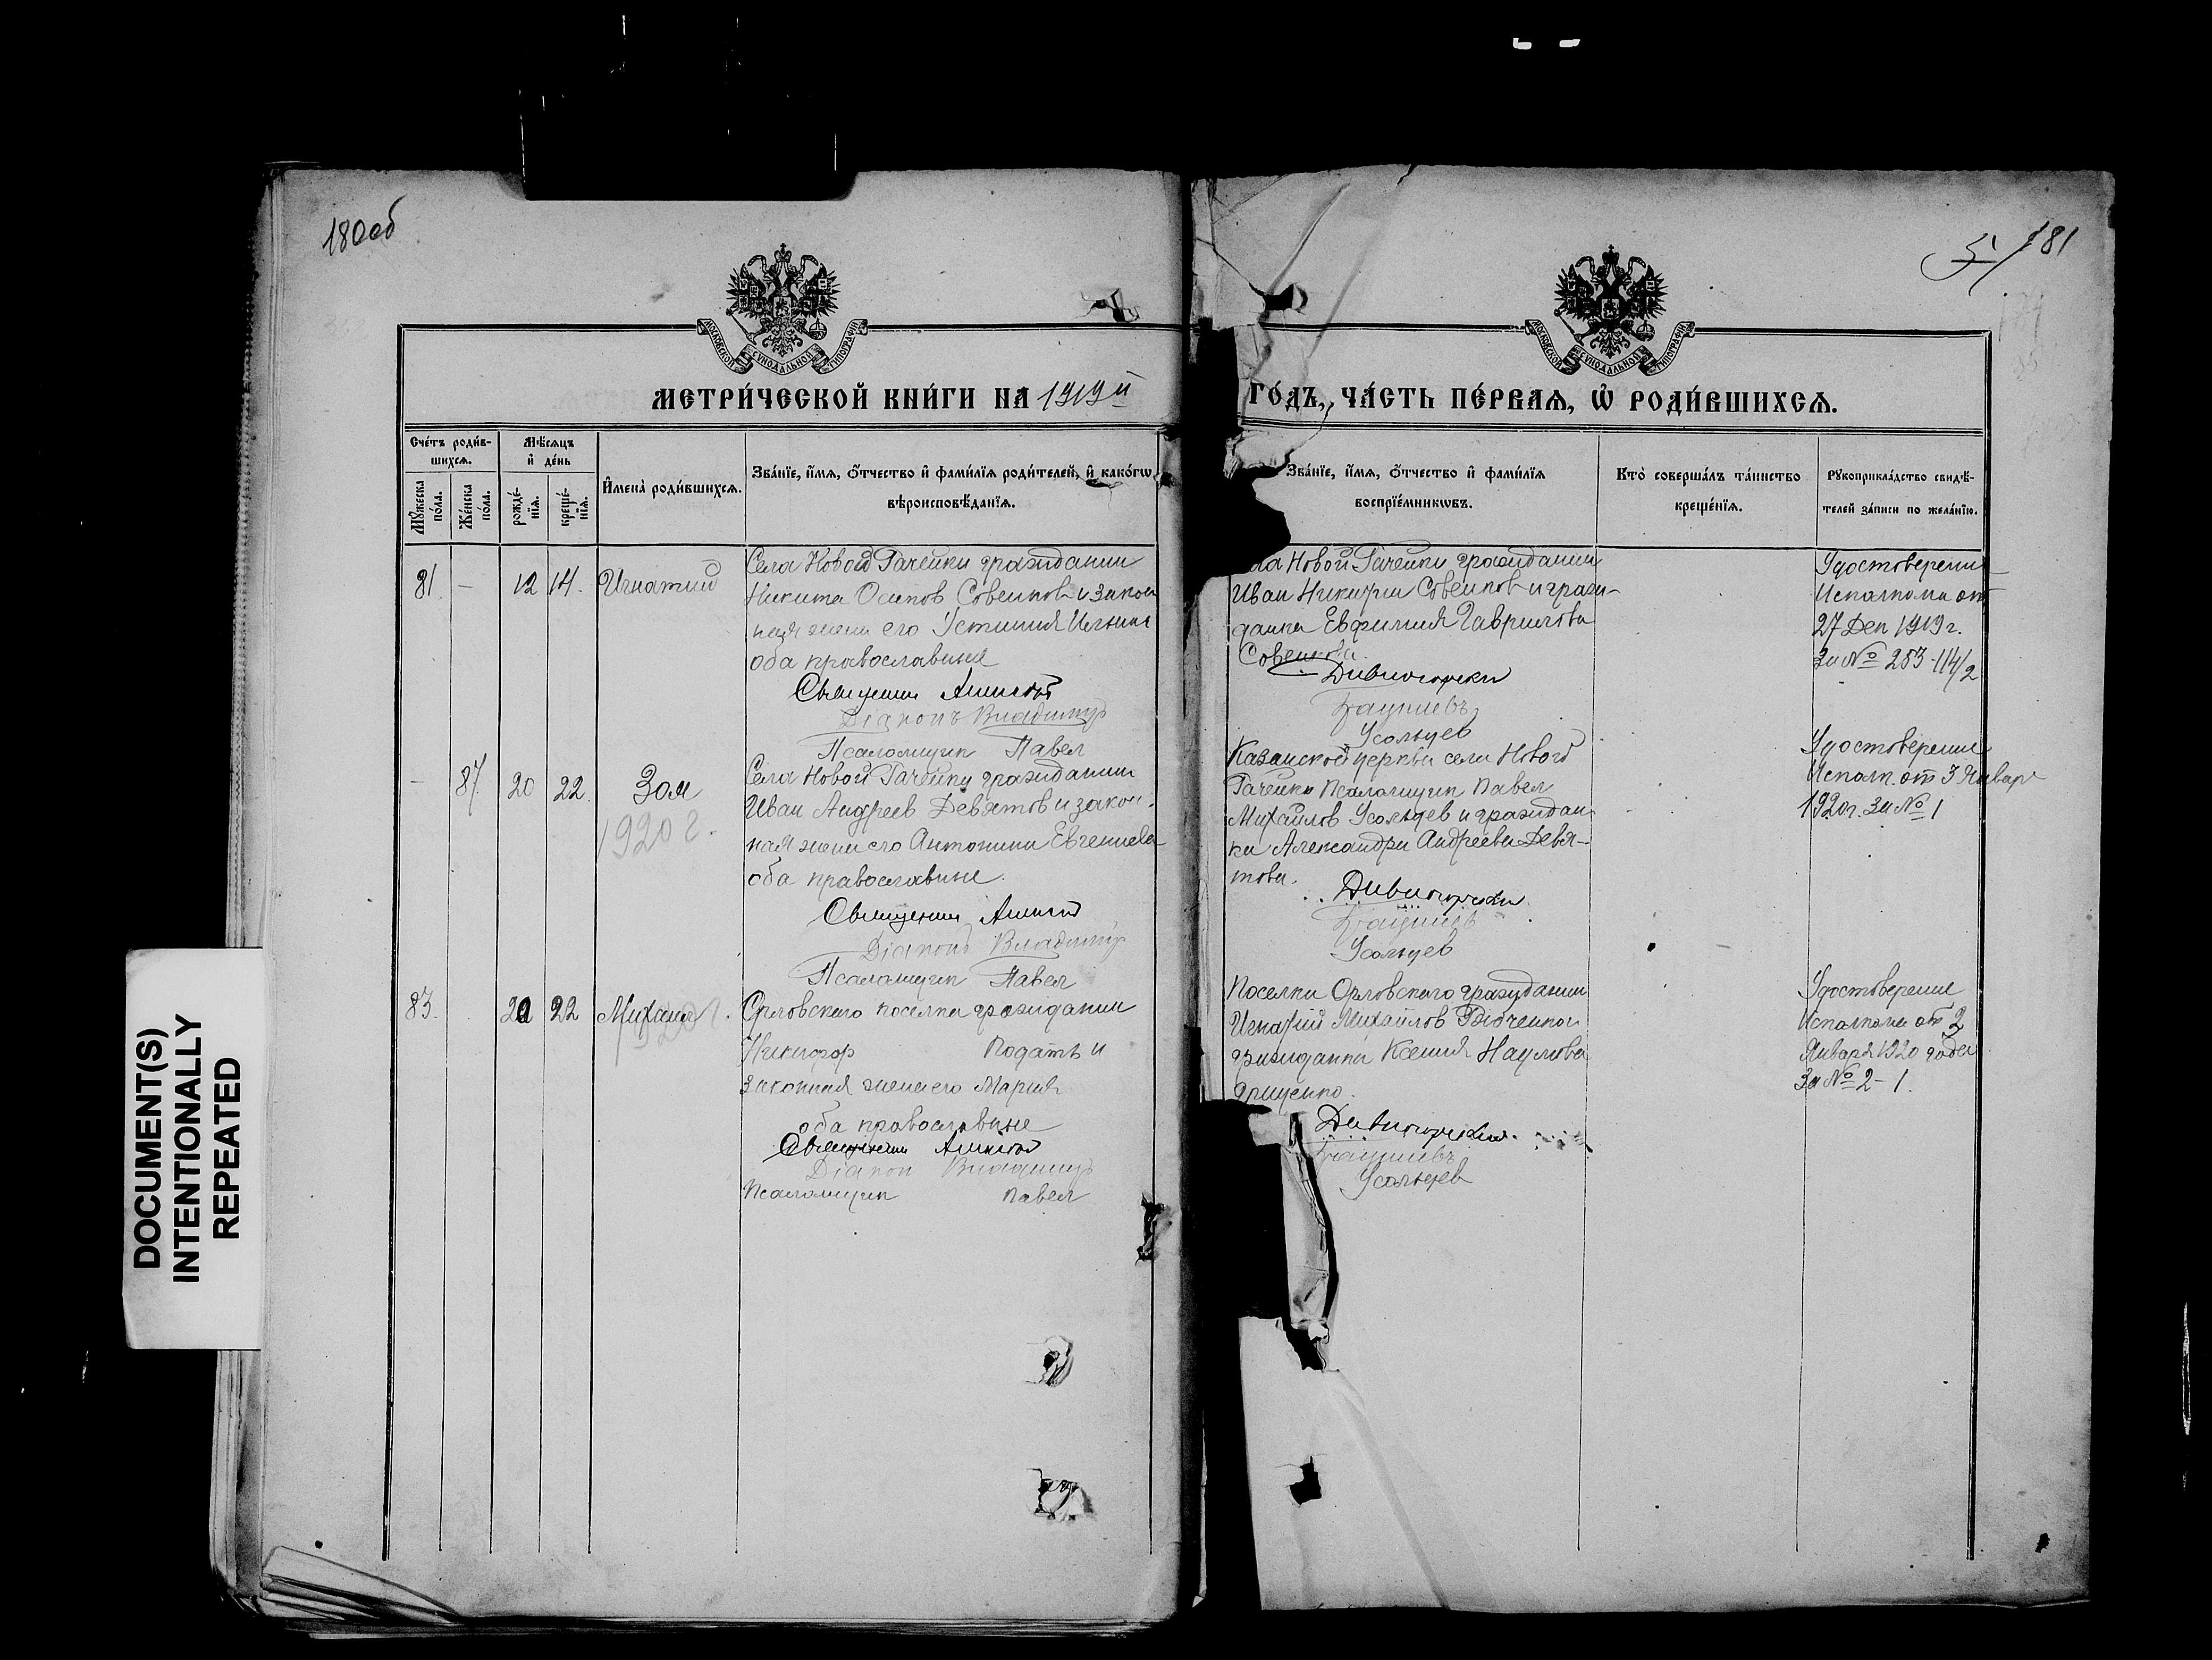 180об
5 181
МОСКОВСКОЙ СУНОДАЛЬНОЙ ТИПОГРАФІИ
МОСКОВСКОЙ СУНОДАЛЬНОЙ ТИПОГРАФІИ
МЕТРИ́ЧЕСКОЙ КНИ́ГИ НА 1919й
ГО́ДЪ, ЧА́СТЬ ПЕ́РВАѦ, Ѽ РОДИ́ВШИХСѦ.
Сче́тъ роди́в-
шихсѧ.
Мѣ́сѧцъ
и҆ де́нь
Мꙋ́жеска по́ла.
Же́нска по́ла.
рожде́-нїѧ.
креще́-нїѧ.
И҆мена̀ роди́вшихсѧ.
Зва́нїе, и҆́мѧ, ѻ҆́тчество и҆ фами́лїѧ роди́телей, и҆ како́гѡ
вѣроисповѣ́данїѧ.
Зва́нїе, и҆́мѧ, ѻ҆́тчество и҆ фами́лїѧ
воспрїе́мникѡвъ.
Кто̀ соверша́лъ та́инство
креще́нїѧ.
Рꙋкоприкла́дство свидѣ́-
телей за́писи по жела́нїю.
81. — 12 14. Игнатий
Села Новой Рачейки гражданин
Никита Осипов Совенков и закон
ная жена его Устиния
оба православные
Священник
Діаконъ Владимір
Псаломщик Павел
Новой Рачейки гражданин
Иван Совенков и граж-
данка Евфимия Гаврилова
Совенкова.
Дивногорский
Усольцев
Удостоверение
Исполкома от
27 Дек 1919 г.
За № 283-114/2
— 87. 20 22. Зоя
1920 г.
Села Новой Рачейки гражданин
Иван Андреев Девятов и закон-
ная жена его Антонина Евгениева
оба православные.
Священник
Діаконъ Владимір
Псаломщик Павел
Казанской церкви села Новой
Рачейки Псаломщик Павел
Михайлов Усольцев и граждан-
ка Александра Андреева Девя-
това.
Дивногорский
Усольцев
Удостоверение
Исполк. от 3 Январ
1920 г. За № 1
83. 20 22 Михаил
Орловского поселка гражданин
Никифор и
законная жена его Мария
оба православные
Священник
Діакон Владимір
Псаломщик Павел
Поселка Орловского гражданин
Михайлов
гражданка Ксения Наумова
Грищенко.
Дивногорский
Усольцев
Удостоверение
Исполкома от 2
Января 1920 года
За № 2-1.
DOCUMENT(S)
INTENTIONALLY
REPEATED